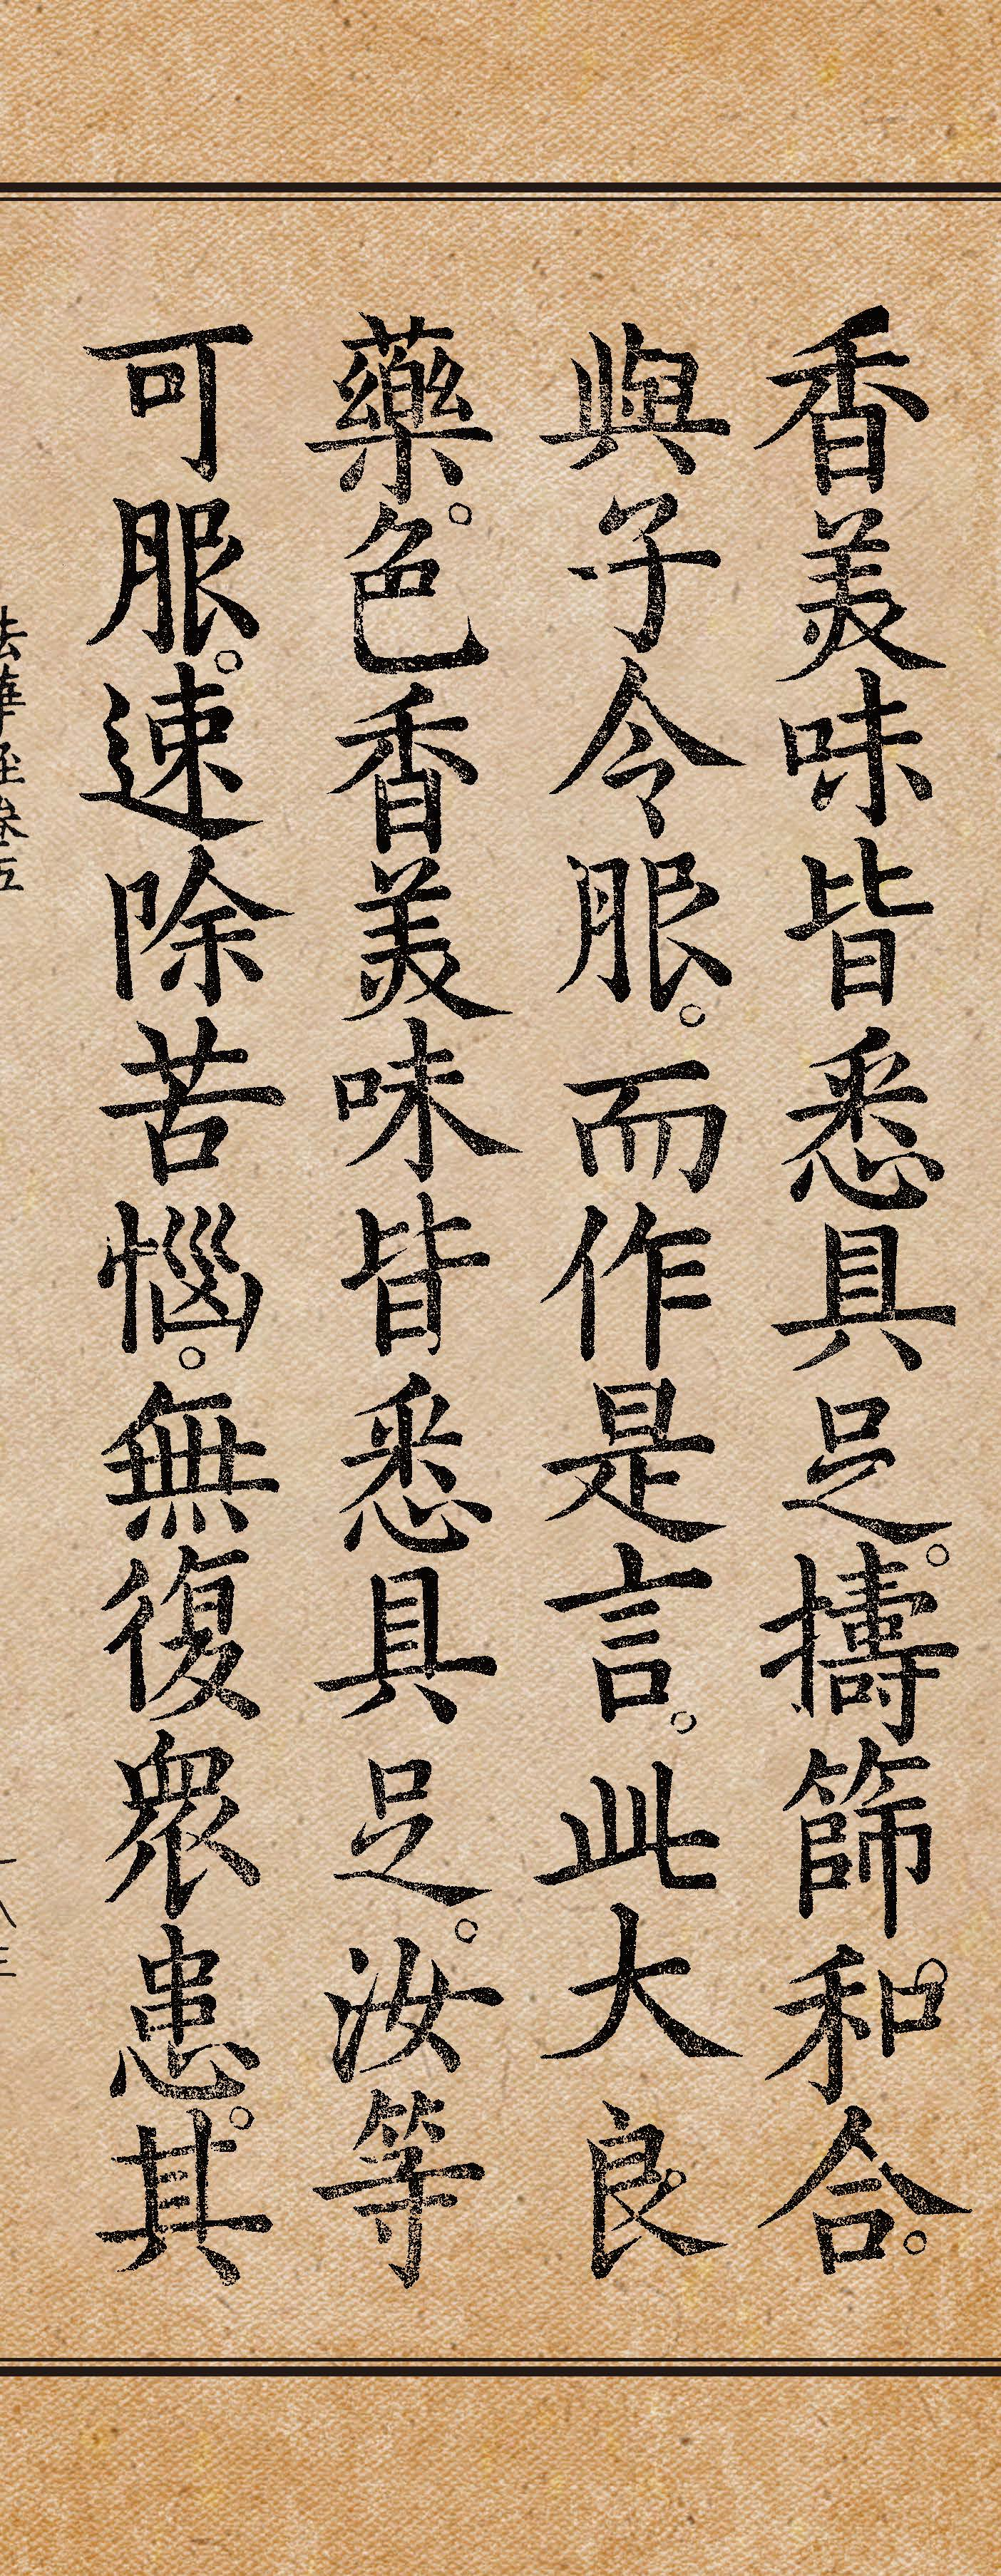 香美味皆悉具足。擣篩和合。
與子令服。而作是言。此大良
藥。色香美味皆悉具足。汝等
可服。速除苦惱。無復衆患。其
法華經卷五
一八三